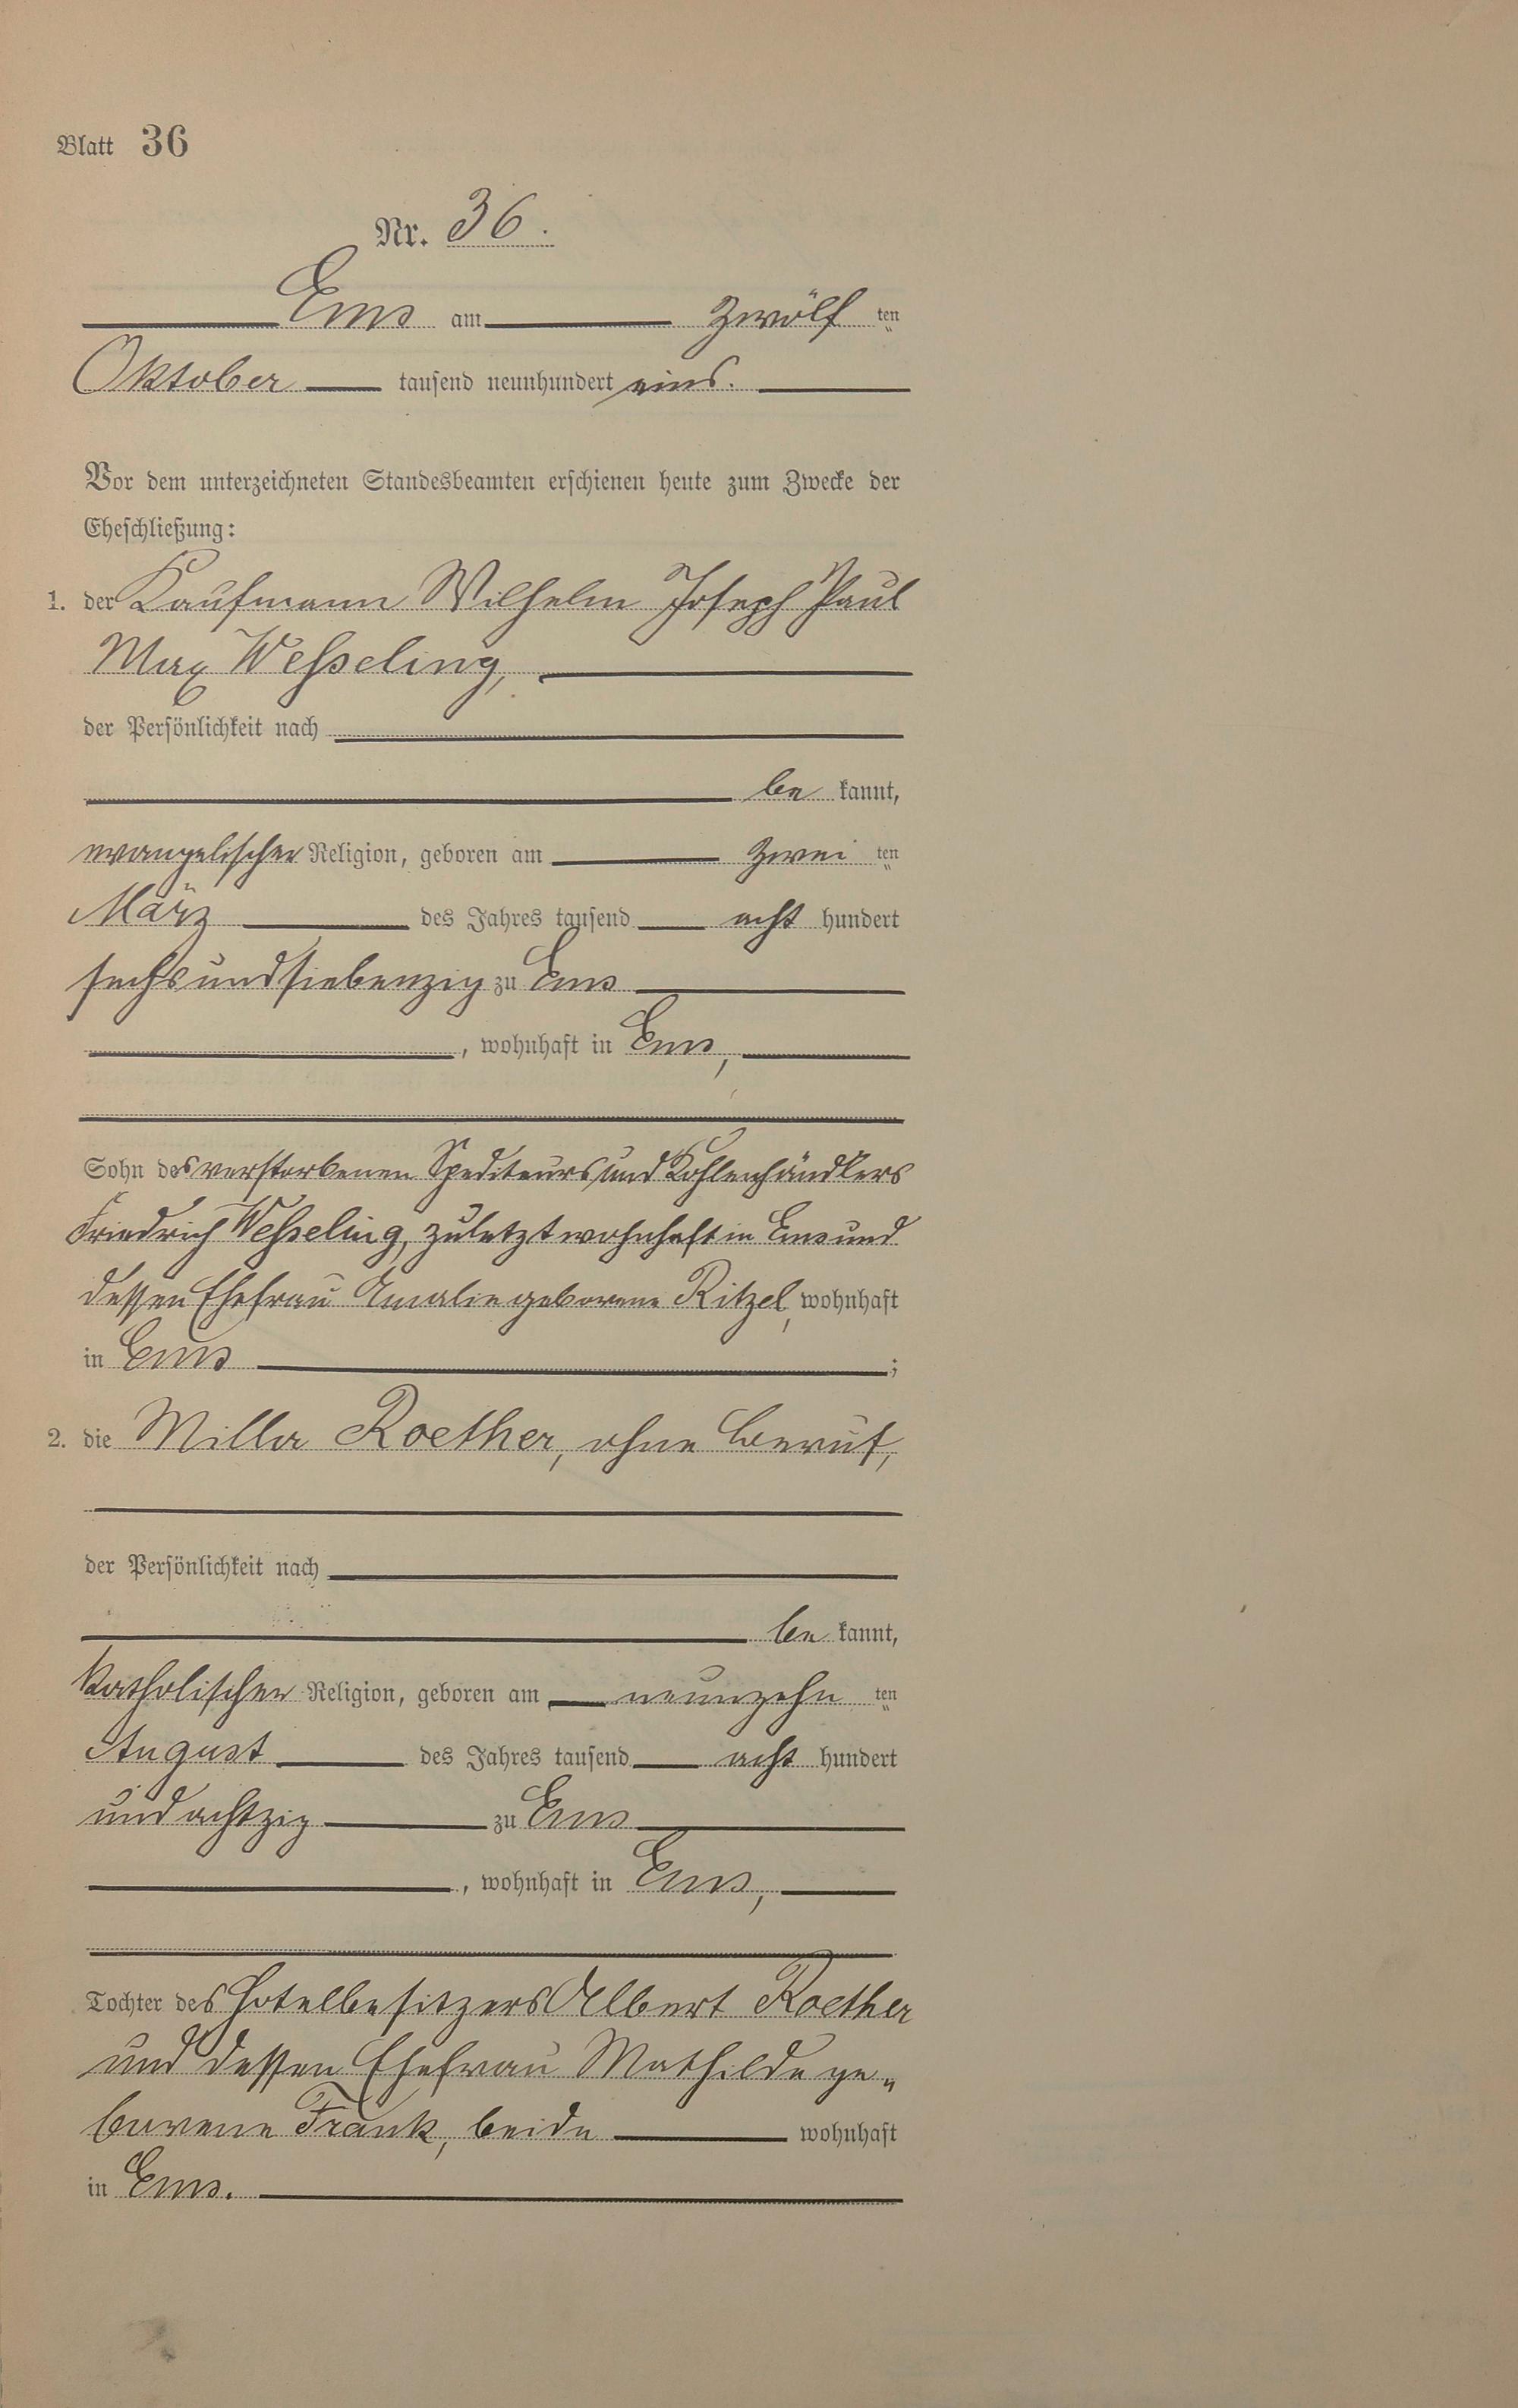 Blatt 36
Nr. 36.
Ems am zwölf ten
Oktober tausend neunhundert eins.
Vor dem unterzeichneten Standesbeamten erschienen heute zum Zwecke der
Eheschließung:
1. der Kaufmann Wilhelm Joseph Paul
Max Wesseling,
der Persönlichkeit nach
be kannt,
evangelischer Religion, geboren am zwei ten
März des Jahres tausend acht hundert
sechsundsiebenzig zu Ems
, wohnhaft in Ems,
Sohn des verstorbenen Spediteurs und Kohlenhändlers
Friedrich Wesseling, zuletzt wohnhaft in Ems und
dessen Ehefrau Amalie geborene Ritzel, wohnhaft
in Ems ;
2. die Milla Roether, ohne Beruf,
der Persönlichkeit nach
be kannt,
katholischer Religion, geboren am neunzehn ten
August des Jahres tausend acht hundert
und achtzig zu Ems
, wohnhaft in Ems,
Tochter des Hotelbesitzers Albert Roether
und dessen Ehefrau Mathilde ge„
borene Frank, beide wohnhaft
in Ems.